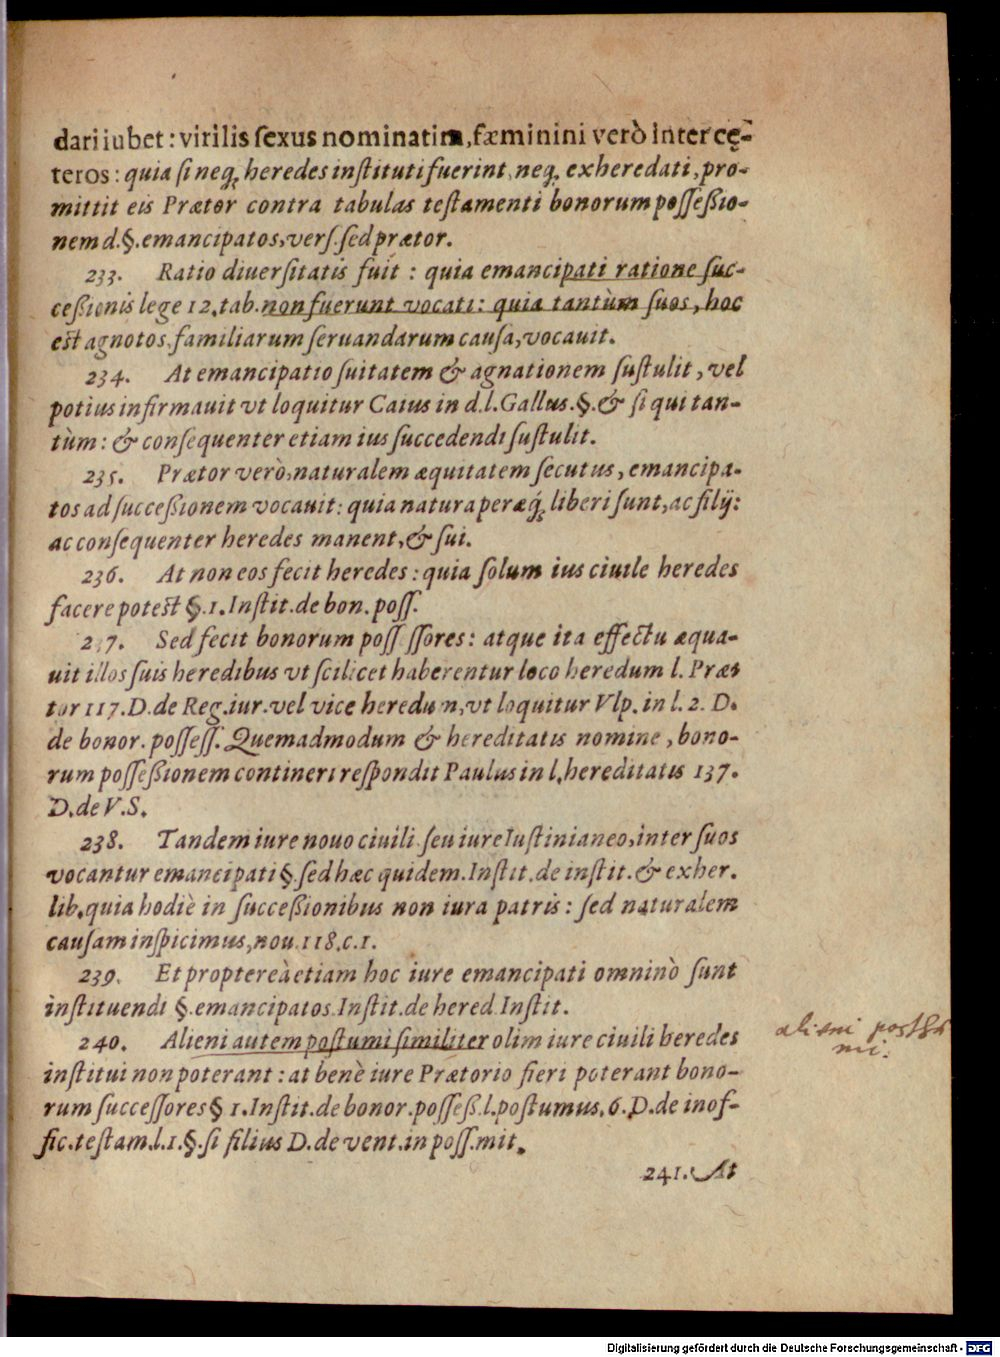 dari iubet: virilis ſexus nominatim, fæminini verò inter cę-
teros: quia ſi neq; heredes inſtituti fuerint, neq; exheredati, pro-
mittit eis Prætor contra tabulas teſtamenti bonorum poſſeßio-
nem d.§. emancipatos, verſ. ſed prætor.
233. Ratio diuerſitatis fuit: quia emancipati ratione ſuc-
ceßionis lege 12. tab. non fuerunt vocati: quia tantùm ſuos, hoc
eſt agnotos, familiarum ſeruandarum cauſa, vocauit.
234. At emancipatio ſuitatem & agnationem ſuſtulit, vel
potius infirmauit vt loquitur Caius in d.l. Gallus. §. & ſi qui tan-
tùm: & conſequenter etiam ius ſuccedendi ſuſtulit.
235. Prætor verò, naturalem æquitatem ſecutus, emancipa-
tos ad ſucceßionem vocauit: quia natura peræq́; liberi ſunt, ac filij:
ac conſequenter heredes manent, & ſui.
236. At non eos fecit heredes: quia ſolum ius ciuile heredes
facere poteſt §. 1. Inſtit. de bon. poſſ.
237. Sed fecit bonorum poſſ ſſores: atque ita effectu æqua-
uit illos ſuis heredibus vt ſcilicet haberentur loco heredum l. Præt
tor 117. D. de Reg. iur. vel vice heredum, vt loquitur Vlp. in l. 2. D.
de bonor. poſſeſſ. Quemadmodum & hereditatis nomine, bono-
rum poſſeßionem contineri reſpondit Paulus in l. hereditatis 137.
D. de V. S.
238. Tandem iure nouo ciuili ſeu iure Iuſtinianeo, inter ſuos
vocantur emancipati §. ſed hæc quidem. Inſtit. de inſtit. & exher.
lib. quia hodiè in ſucceßionibus non iura patris: ſed naturalem
cauſam inſpicimus, nou. 118. c. 1.
239. Et proptereà etiam hoc iure emancipati omninò ſunt
inſtituendi §. emancipatos. Inſtit. de hered. Inſtit.
240. Alieni autem poſtumi ſimiliter olim iure ciuili heredes
inſtitui non poterant: at benè iure Prætorio fieri poterant bono-
rum ſucceſſores § 1. Inſtit. de bonor. poſſeß. l. poſtumus. 6. D. de inof-
fic. teſtam. l. 1. §. ſi filius D. de vent. in poſſ. mit.
241. At
alieni posthu
mi.
Digitalisierung gefördert durch die Deutsche Forschungsgemeinschaft - DFG